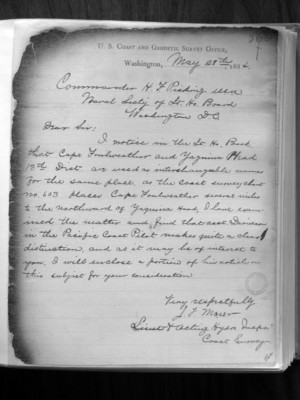 U. S. COAST AND GEODETIC SURVEY OFFICE,
Washington, May 28th, 1884.
Commander H F Picking USN
Naval Secty of Lt. Ho. Board
Washington D C
Dear Sir;
I notice in the Lt. Ho. Book
that Cape Foulweather and Yaquina Head
13th Dist. are used as interchangeable names
for the same place, as the Coast survey chart
no. 603 places Cape Foulweather several miles
to the northward of Yaquina Head, I have exa-
mined the matter and find that asst Davidson
in the Pacific Coast Pilot makes quite a clear
distinction, and as it may be of interest to
you, I will enclose a portion of his notice on
this subject for your consideration
Very respectfully
J F Moser
Lieut & Acting Hydro Inspr
Coast Survey